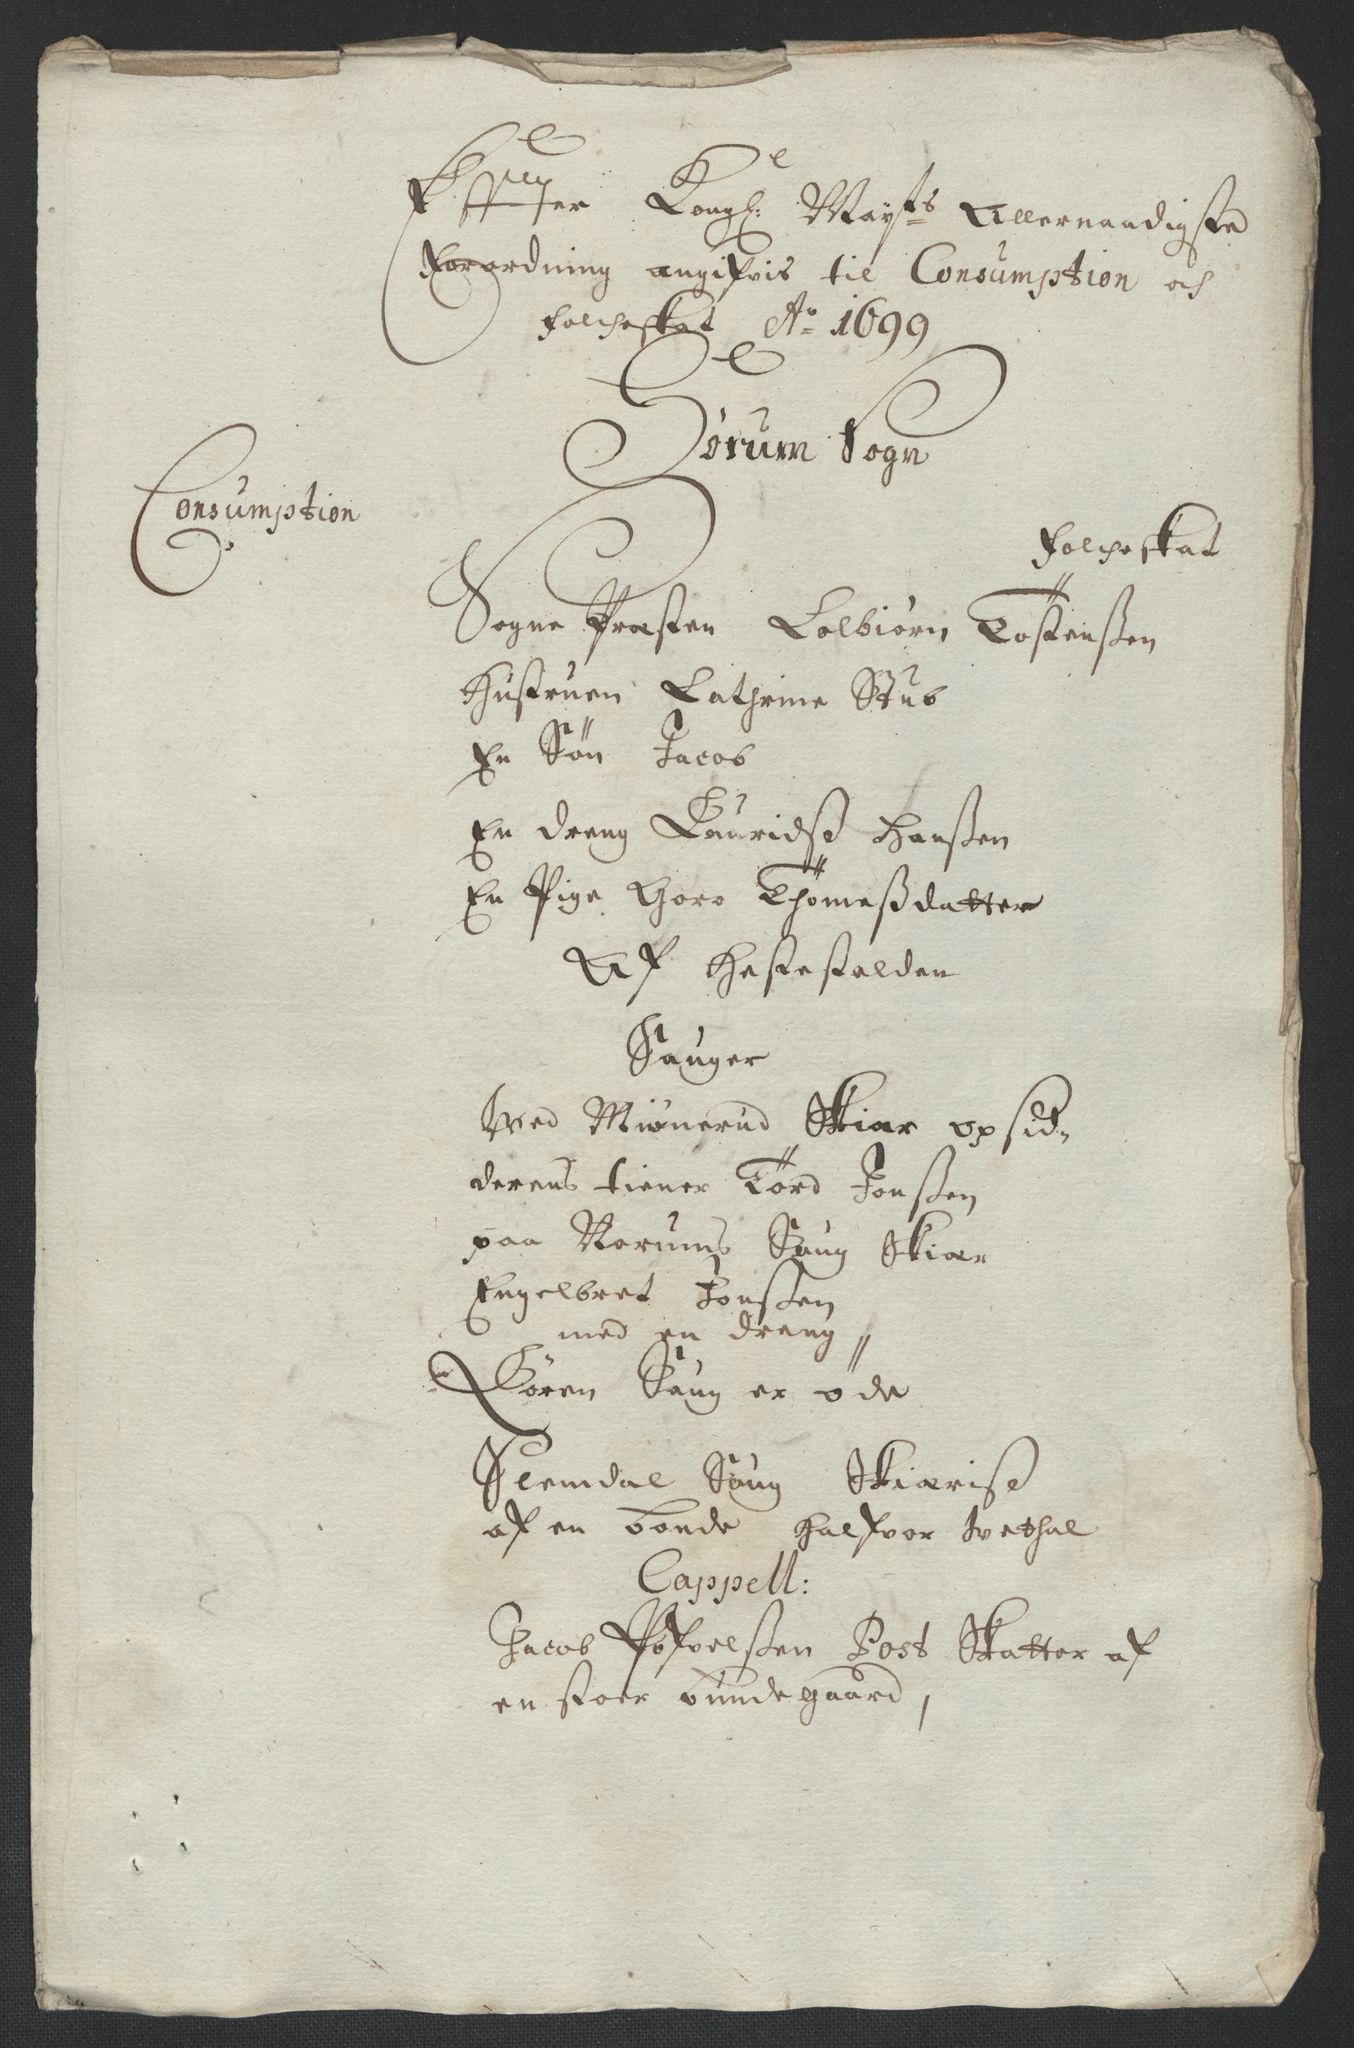 Effter Kongl: Mayts Allernaadigste
Forordning angifvis til Consumption och
Folcheskat Ao 1699
Sørum Sogn
Consumption
Folcheskat
Sogne Præsten Colbiørn Tostenßen
Hustruen Cathrine Stub
En Søn Jacob
En dreng Lauridß Hanßen
En Pige Goro Thomeßdatter
Af Hestestalden
Sauger
Ved Miønerud Skiær opsid-
derens tiener Tord Jonßen
paa Rorums Saug Skiær
Engelbret Jonßen
med en dreng
Søren Saug er øde
Slemdal Saug Skiæriß
af en bonde Halfvor Tvethal
Cappell:
Jacob Pofvelßen Post Skatter af
en stoer bundegaard,